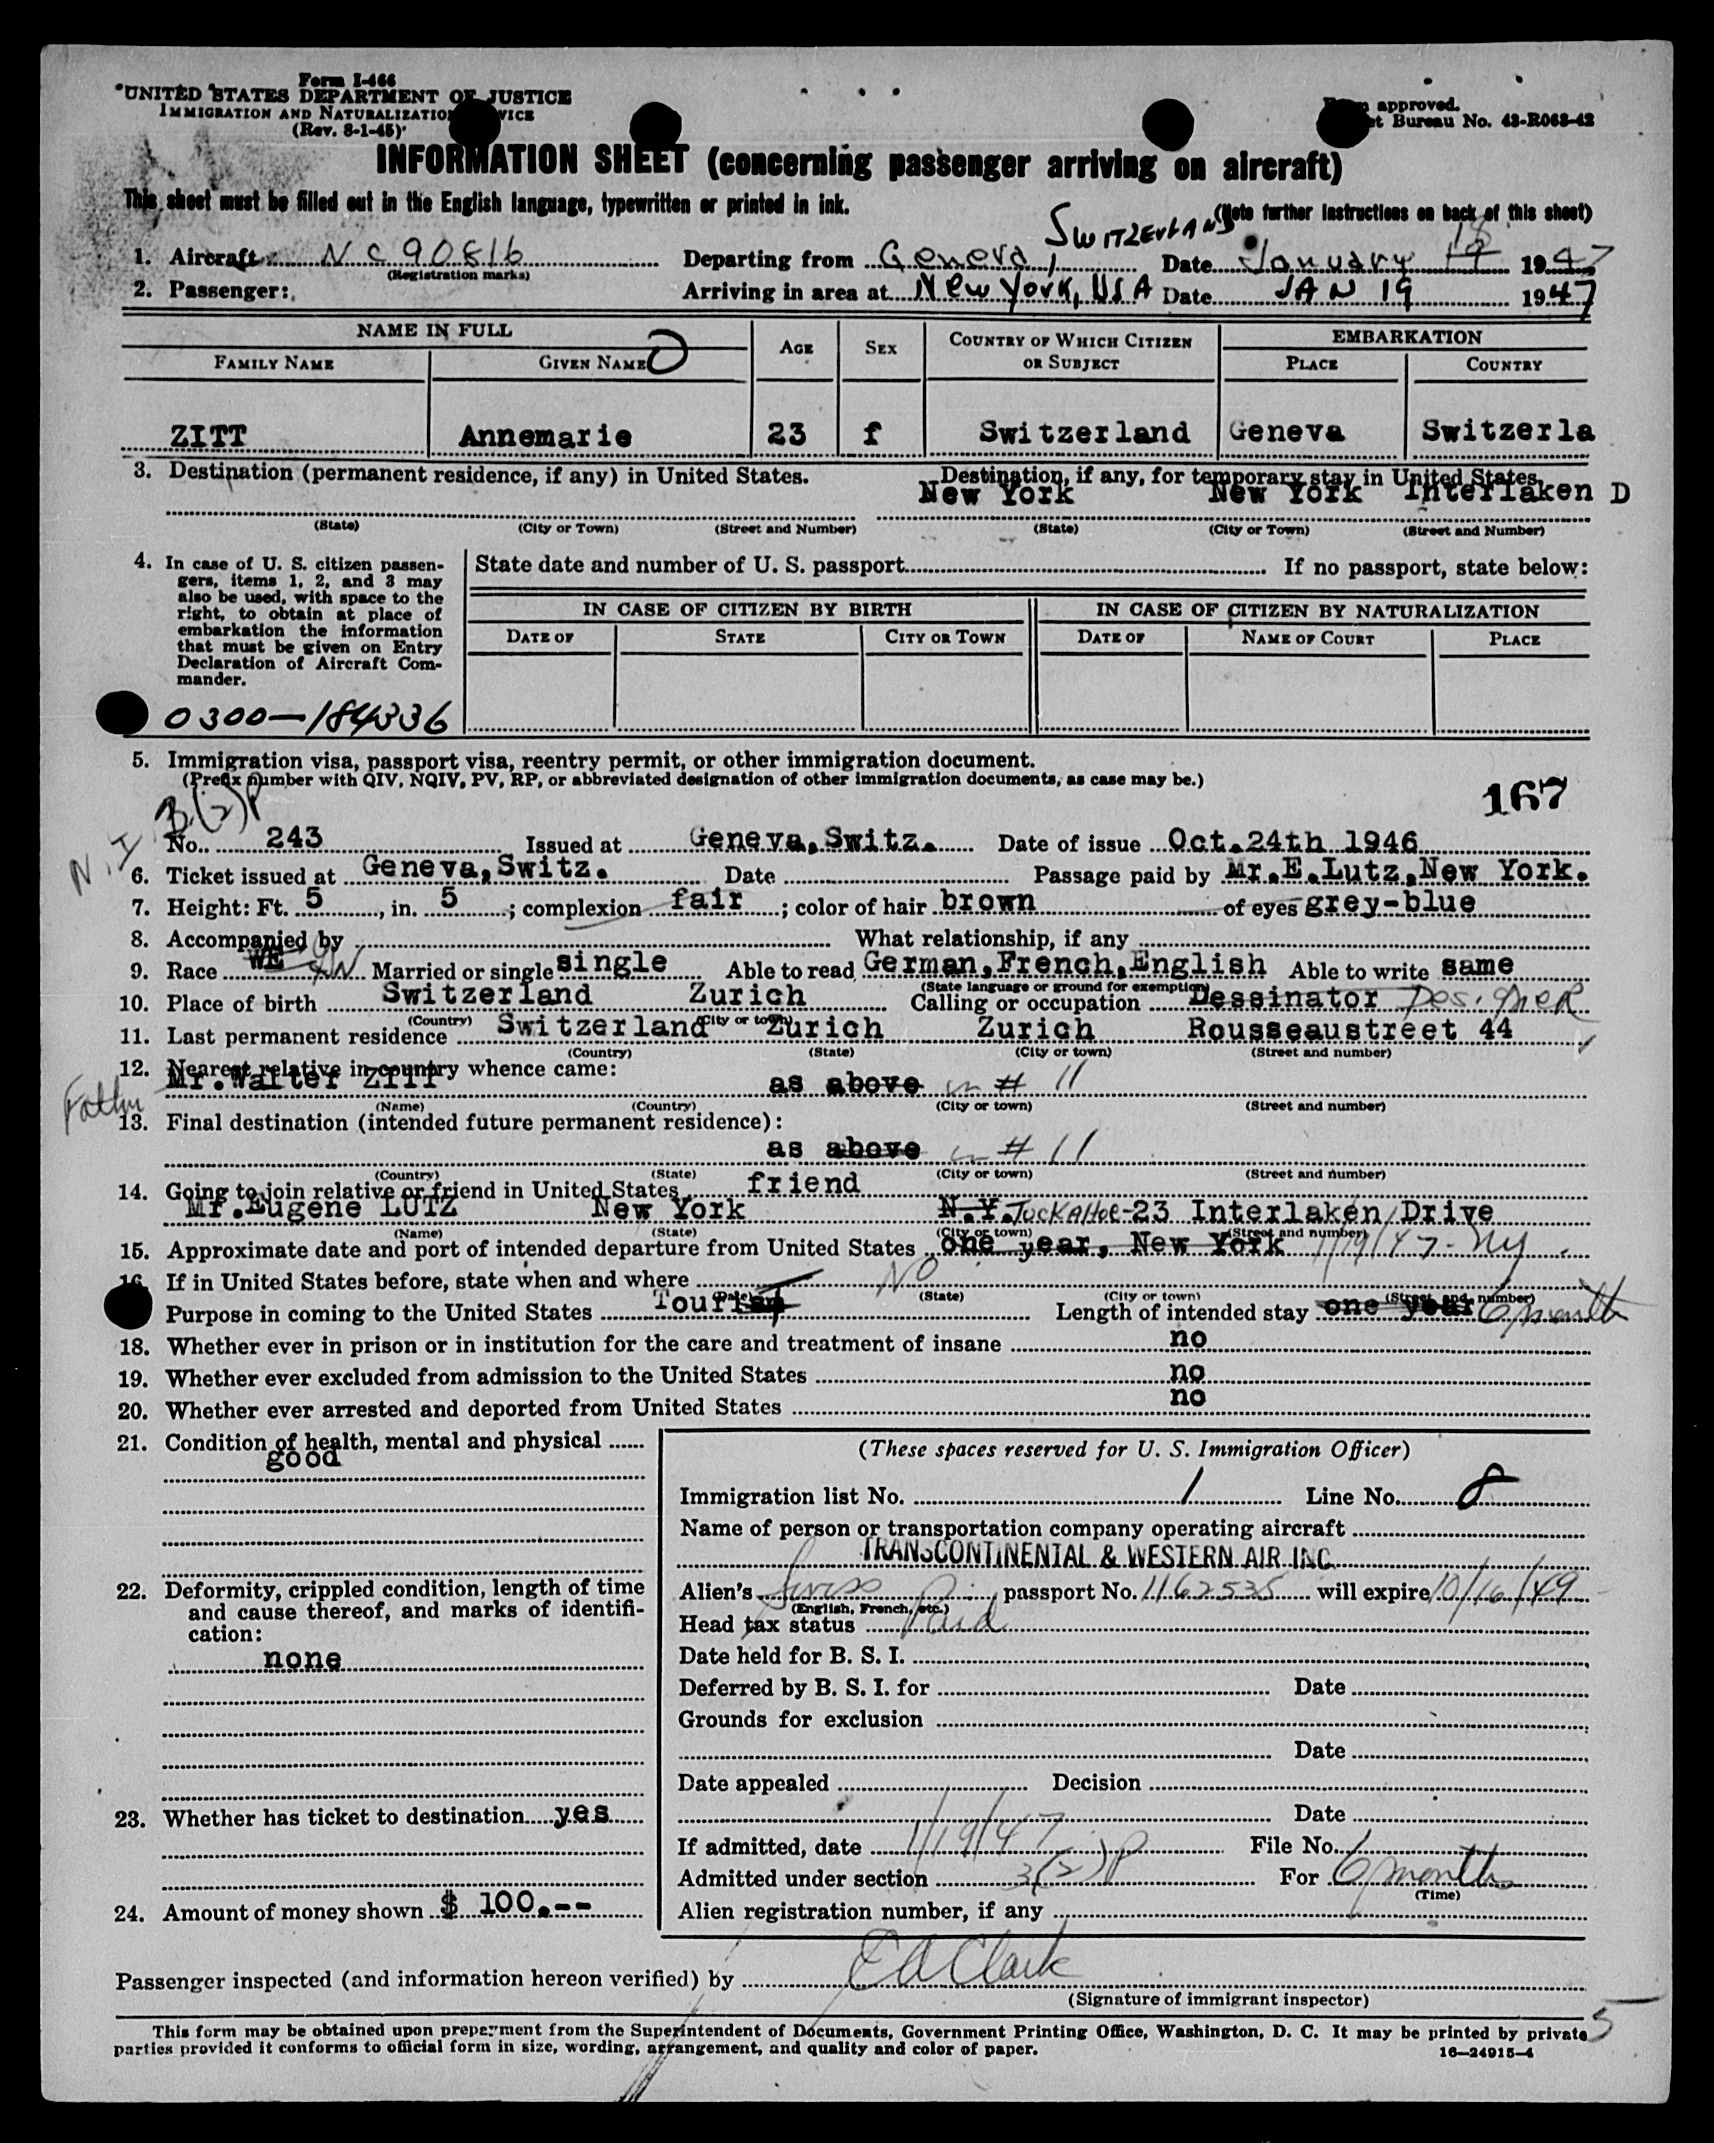 Form I-466
UNITED STATES DEPARTMENT OF JUSTICE
IMMIGRATION AND NATURALIZATION
(Rev. 8-1-45)
approved.
Bureau No. 43-R063-42
INFORMATION SHEET (concerning passenger arriving on aircraft)
This sheet must be filled out in the English language, typewritten or printed in ink.
(Note further instructions on back of this sheet)
1. Aircraft NC90816 Departing from Geneva, SWITZERLAND Date January 18 1947
(Registration marks)
2. Passenger: Arriving in area at New York, USA Date JAN 19 1947
NAME IN FULL AGE SEX COUNTRY OF WHICH CITIZEN OR SUBJECT EMBARKATION
FAMILY NAME GIVEN NAME PLACE COUNTRY
ZITT Annemarie 23 f Switzerland Geneva Switzerla
3. Destination (permanent residence, if any) in United States. Destination, if any, for temporary stay in United States.
New York New York Interlaken D
(State) (City or Town) (Street and Number) (State) (City or Town) (Street and Number)
4. In case of U. S. citizen passen-
gers, items 1, 2, and 3 may
also be used, with space to the
right, to obtain at place of
embarkation the information
that must be given on Entry
Declaration of Aircraft Com-
mander.
State date and number of U. S. passport If no passport, state below:
IN CASE OF CITIZEN BY BIRTH IN CASE OF CITIZEN BY NATURALIZATION
DATE OF STATE CITY OR TOWN DATE OF NAME OF COURT PLACE
0300-184336
5. Immigration visa, passport visa, reentry permit, or other immigration document.
(Prefix number with QIV, NQIV, PV, RP, or abbreviated designation of other immigration documents, as case may be.)
167
3(2)P
N.I.
No. 243 Issued at Geneva,Switz. Date of issue Oct.24th 1946
6. Ticket issued at Geneva,Switz. Date Passage paid by Mr.E.Lutz,New York.
7. Height: Ft. 5, in. 5; complexion fair; color of hair brown of eyes grey-blue
8. Accompanied by What relationship, if any
9. Race WE Married or single single Able to read German,French,English Able to write same
(State language or ground for exemption)
10. Place of birth Switzerland Zurich Calling or occupation Dessinator DESIGNER
(Country) (City or town)
11. Last permanent residence Switzerland Zurich Zurich Rousseaustreet 44
(Country) (State) (City or town) (Street and number)
12. Nearest relative in country whence came:
Father
Mr.Walter ZITT as above in # 11
(Name) (Country) (City or town) (Street and number)
13. Final destination (intended future permanent residence):
as above in # 11
(Country) (State) (City or town) (Street and number)
14. Going to join relative or friend in United States friend
Mr.Eugene LUTZ New York N.Y. TUCKAHOE-23 Interlaken Drive
(Name) (State) (City or town) (Street and number)
15. Approximate date and port of intended departure from United States one year, New York 1/19/47-NY
16. If in United States before, state when and where NO
(Date) (State) (City or town) (Street and number)
Purpose in coming to the United States Tourist Length of intended stay one year 6 months
18. Whether ever in prison or in institution for the care and treatment of insane no
19. Whether ever excluded from admission to the United States no
20. Whether ever arrested and deported from United States no
21. Condition of health, mental and physical
good
22. Deformity, crippled condition, length of time
and cause thereof, and marks of identifi-
cation:
none
23. Whether has ticket to destination yes
24. Amount of money shown $ 100.--
(These spaces reserved for U. S. Immigration Officer)
Immigration list No. 1 Line No. 8
Name of person or transportation company operating aircraft
TRANSCONTINENTAL & WESTERN AIR INC
Alien's Swiss passport No. 1162535 will expire 10/16/49
(English, French, etc.)
Head tax status Paid
Date held for B. S. I.
Deferred by B. S. I. for Date
Grounds for exclusion
Date
Date appealed Decision
Date
If admitted, date 1/19/47 File No.
Admitted under section 3(2)P For 6 months
(Time)
Alien registration number, if any
Passenger inspected (and information hereon verified) by E A Clark
(Signature of immigrant inspector)
5
This form may be obtained upon prepayment from the Superintendent of Documents, Government Printing Office, Washington, D. C. It may be printed by private
parties provided it conforms to official form in size, wording, arrangement, and quality and color of paper.
16—24915-4